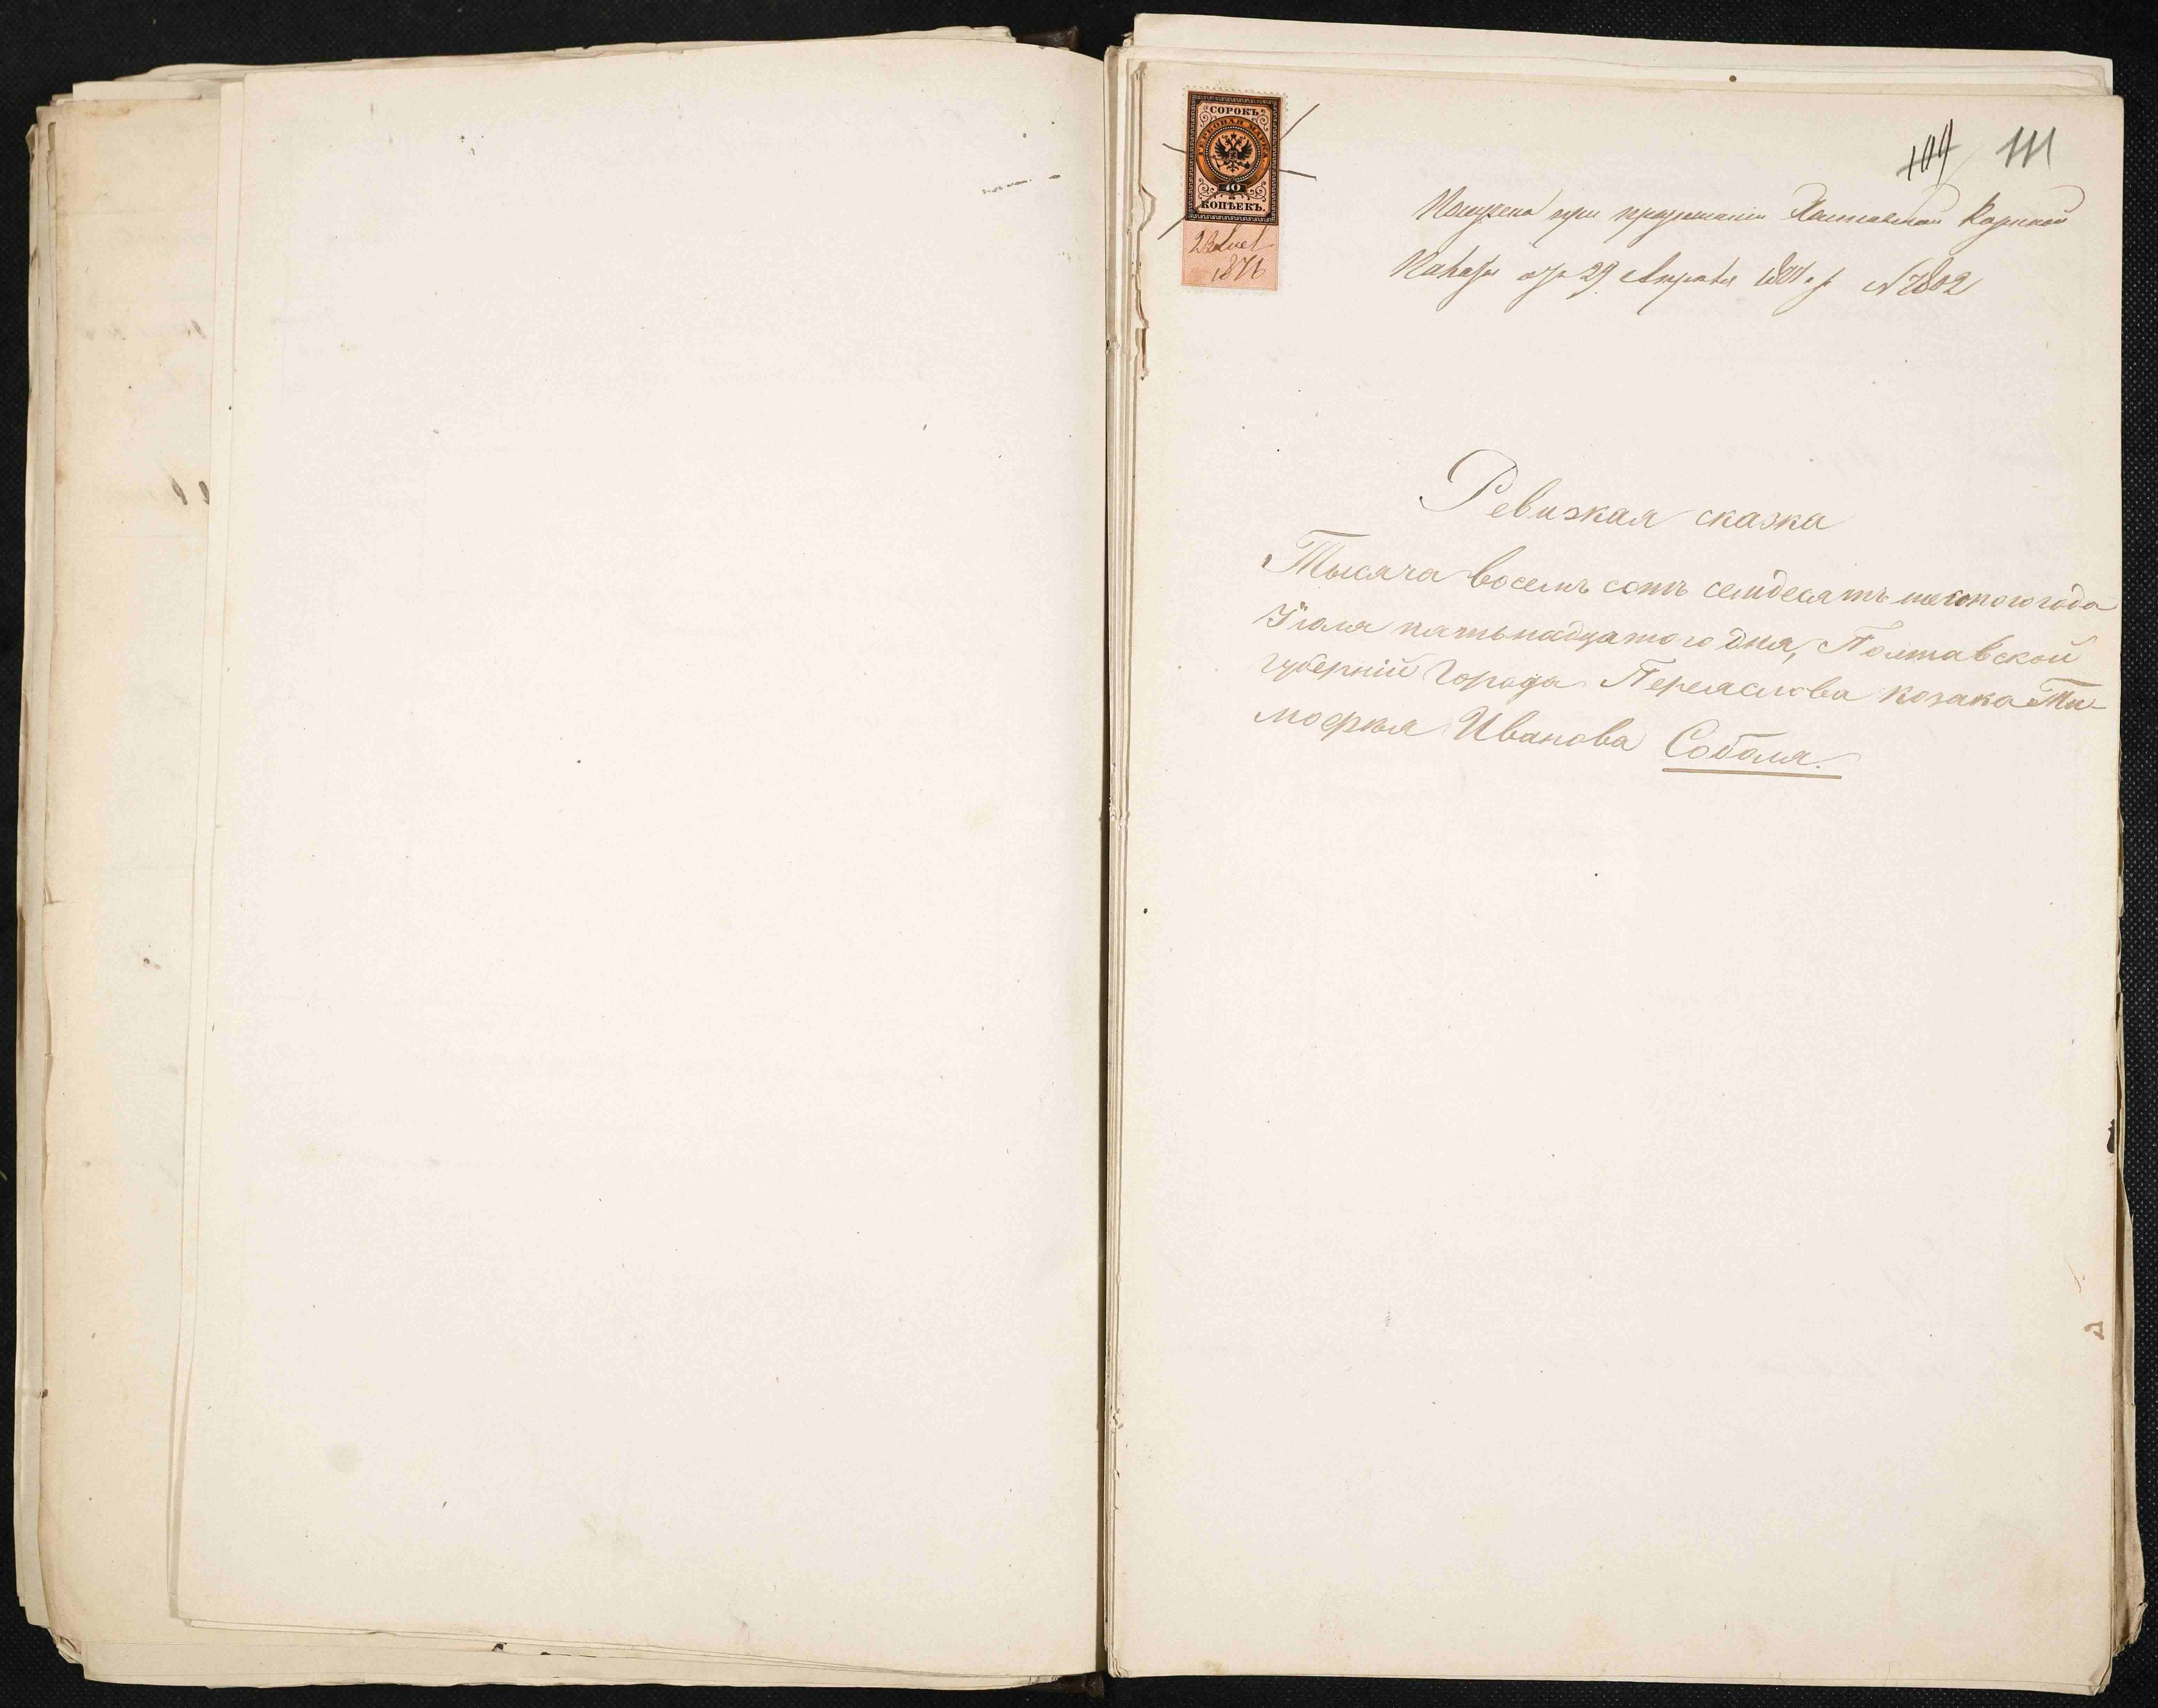 СОРОКЪ
ГЕРБОВАЯ МАРКА
40
КОПѢЕКЪ.
1876
109 111
Получена при предписаніи Полтавской Казенной
Палаты отъ 29 Апрѣля г. № 7802
Ревизкая сказка
Тысяча восемь сотъ семдесятъ шестого года
Іюля пятьнадцатого дня, Полтавской
губерніи Города Переяслова козака Ти-
мофѣя Иванова Соболя.